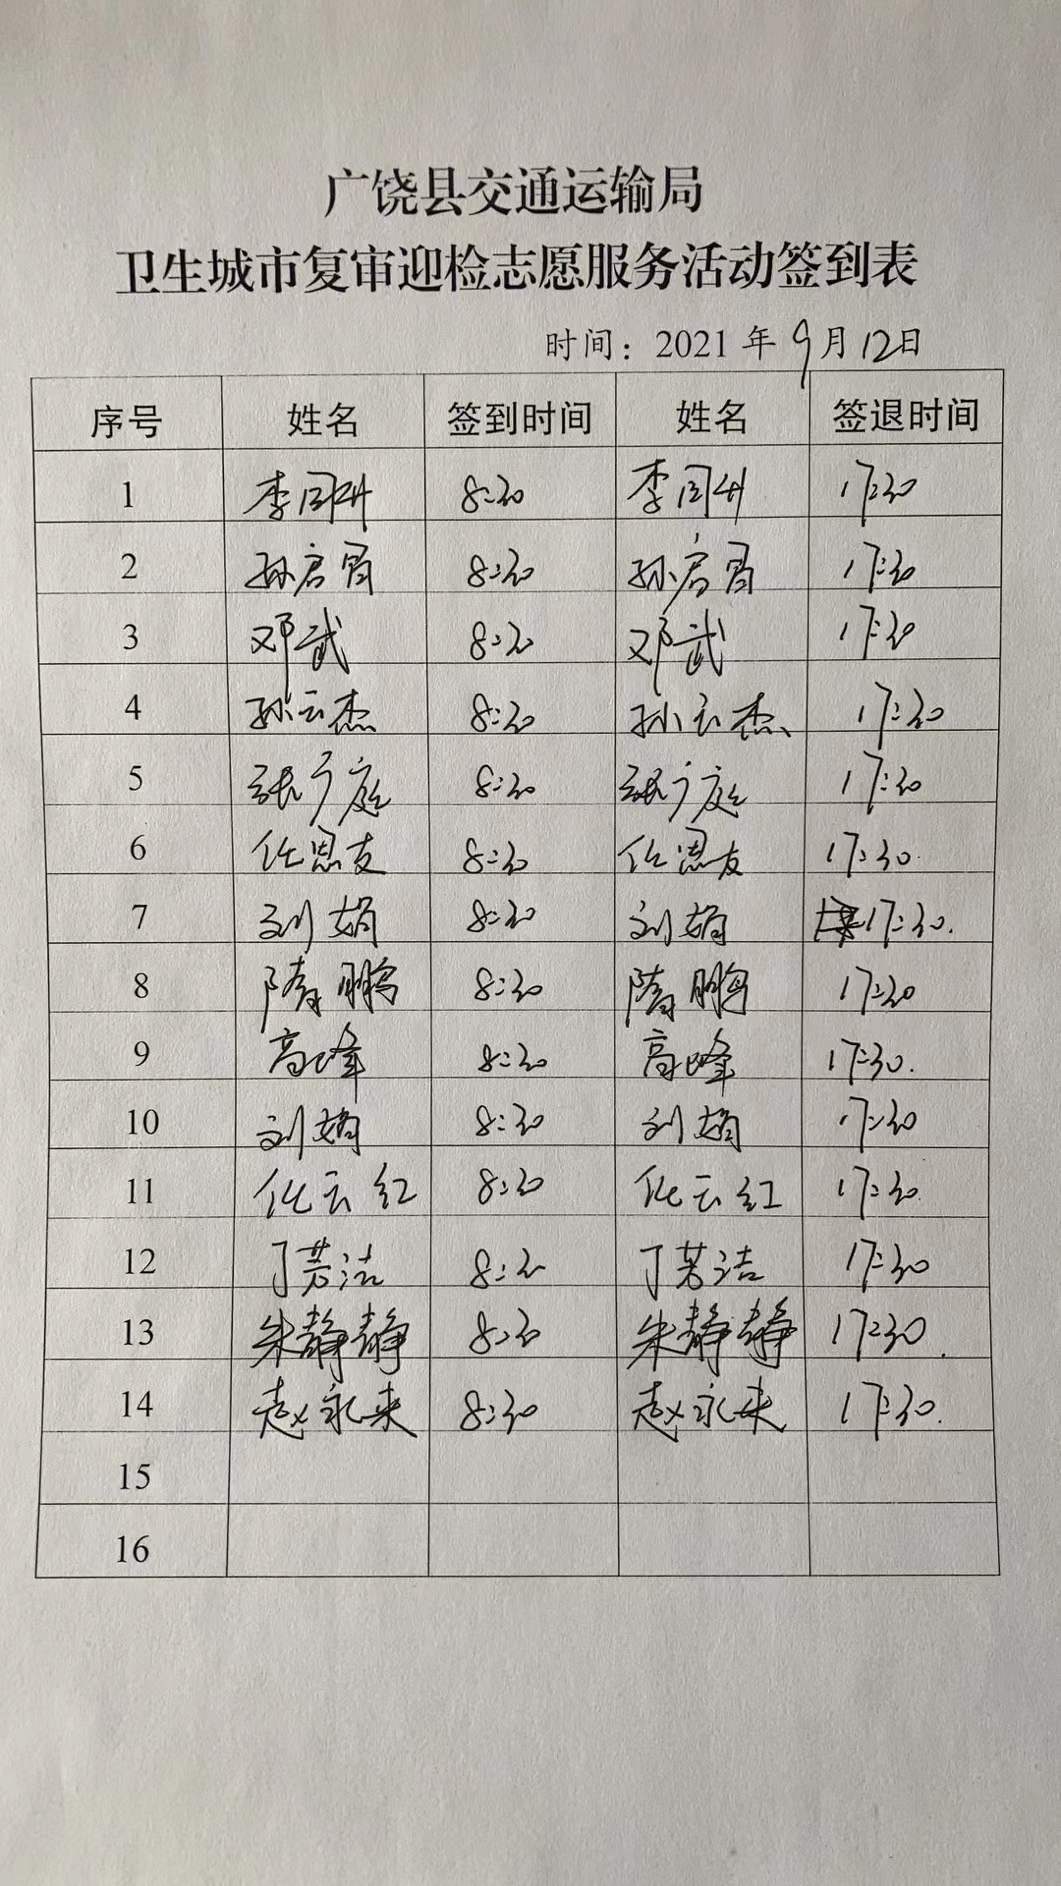 广饶县交通运输局
卫生城市复审迎检志愿服务活动签到表
时间：2021年9月12日
序号 姓名 签到时间 姓名 签退时间
1 李同升 8:30 李同升 17:30
2 孙启胥 8:30 孙启胥 17:30
3 邓武 8:30 邓武 17:30
4 孙云杰 8:30 孙云杰 17:30
5 张广庭 8:30 张广庭 17:30
6 任思友 8:30 任思友 17:30
7 刘娟 8:30 刘娟 17:30.
8 隋鹏 8:30 隋鹏 17:30
9 高峰 8:30 高峰 17:30.
10 刘娟 8:30 刘娟 17:30
11 任云红 8:30 任云红 17:30
12 丁芳洁 8:30 丁芳洁 17:30
13 朱静静 8:30 朱静静 17:30
14 赵永来 8:30 赵永来 17:30.
15
16